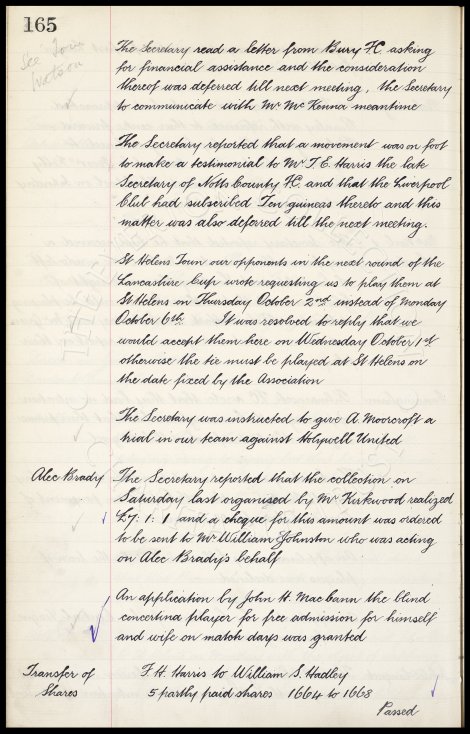 165
See Tom
Watson
The Secretary read a letter from Bury F.C. asking
for financial assistance and the consideration
thereof was deferred till next meeting, the Secretary
to communicate with Mr McKenna meantime
The Secretary reported that a movement was on foot
to make a testimonial to Mr T. E. Harris the late
Secretary of Notts County F.C. and that the Liverpool
Club had subscribed Ten guineas thereto and this
matter was also deferred till the next meeting.
St Helens Town our opponents in the next round of the
Lancashire Cup wrote requesting us to play them at
St Helens on Thursday October 2nd instead of Monday
October 6th. It was resolved to reply that we
would accept them here on Wednesday October 1st
otherwise the tie must be played at St Helens on
the date fixed by the Association
The Secretary was instructed to give A. Moorcroft a
trial in our team against Holywell United
Alec Brady The Secretary reported that the collection on
Saturday last organised by Mr Kirkwood realized
£7: 1: 1 and a cheque for this amount was ordered
to be sent to Mr William Johnston who was acting
on Alec Brady's behalf
An application by John H. Maccann the blind
concertina player for free admission for himself
and wife on match days was granted
Transfer of F. H. Harris to William S. Hadley
Shares 5 partly paid shares 1664 to 1668
Passed